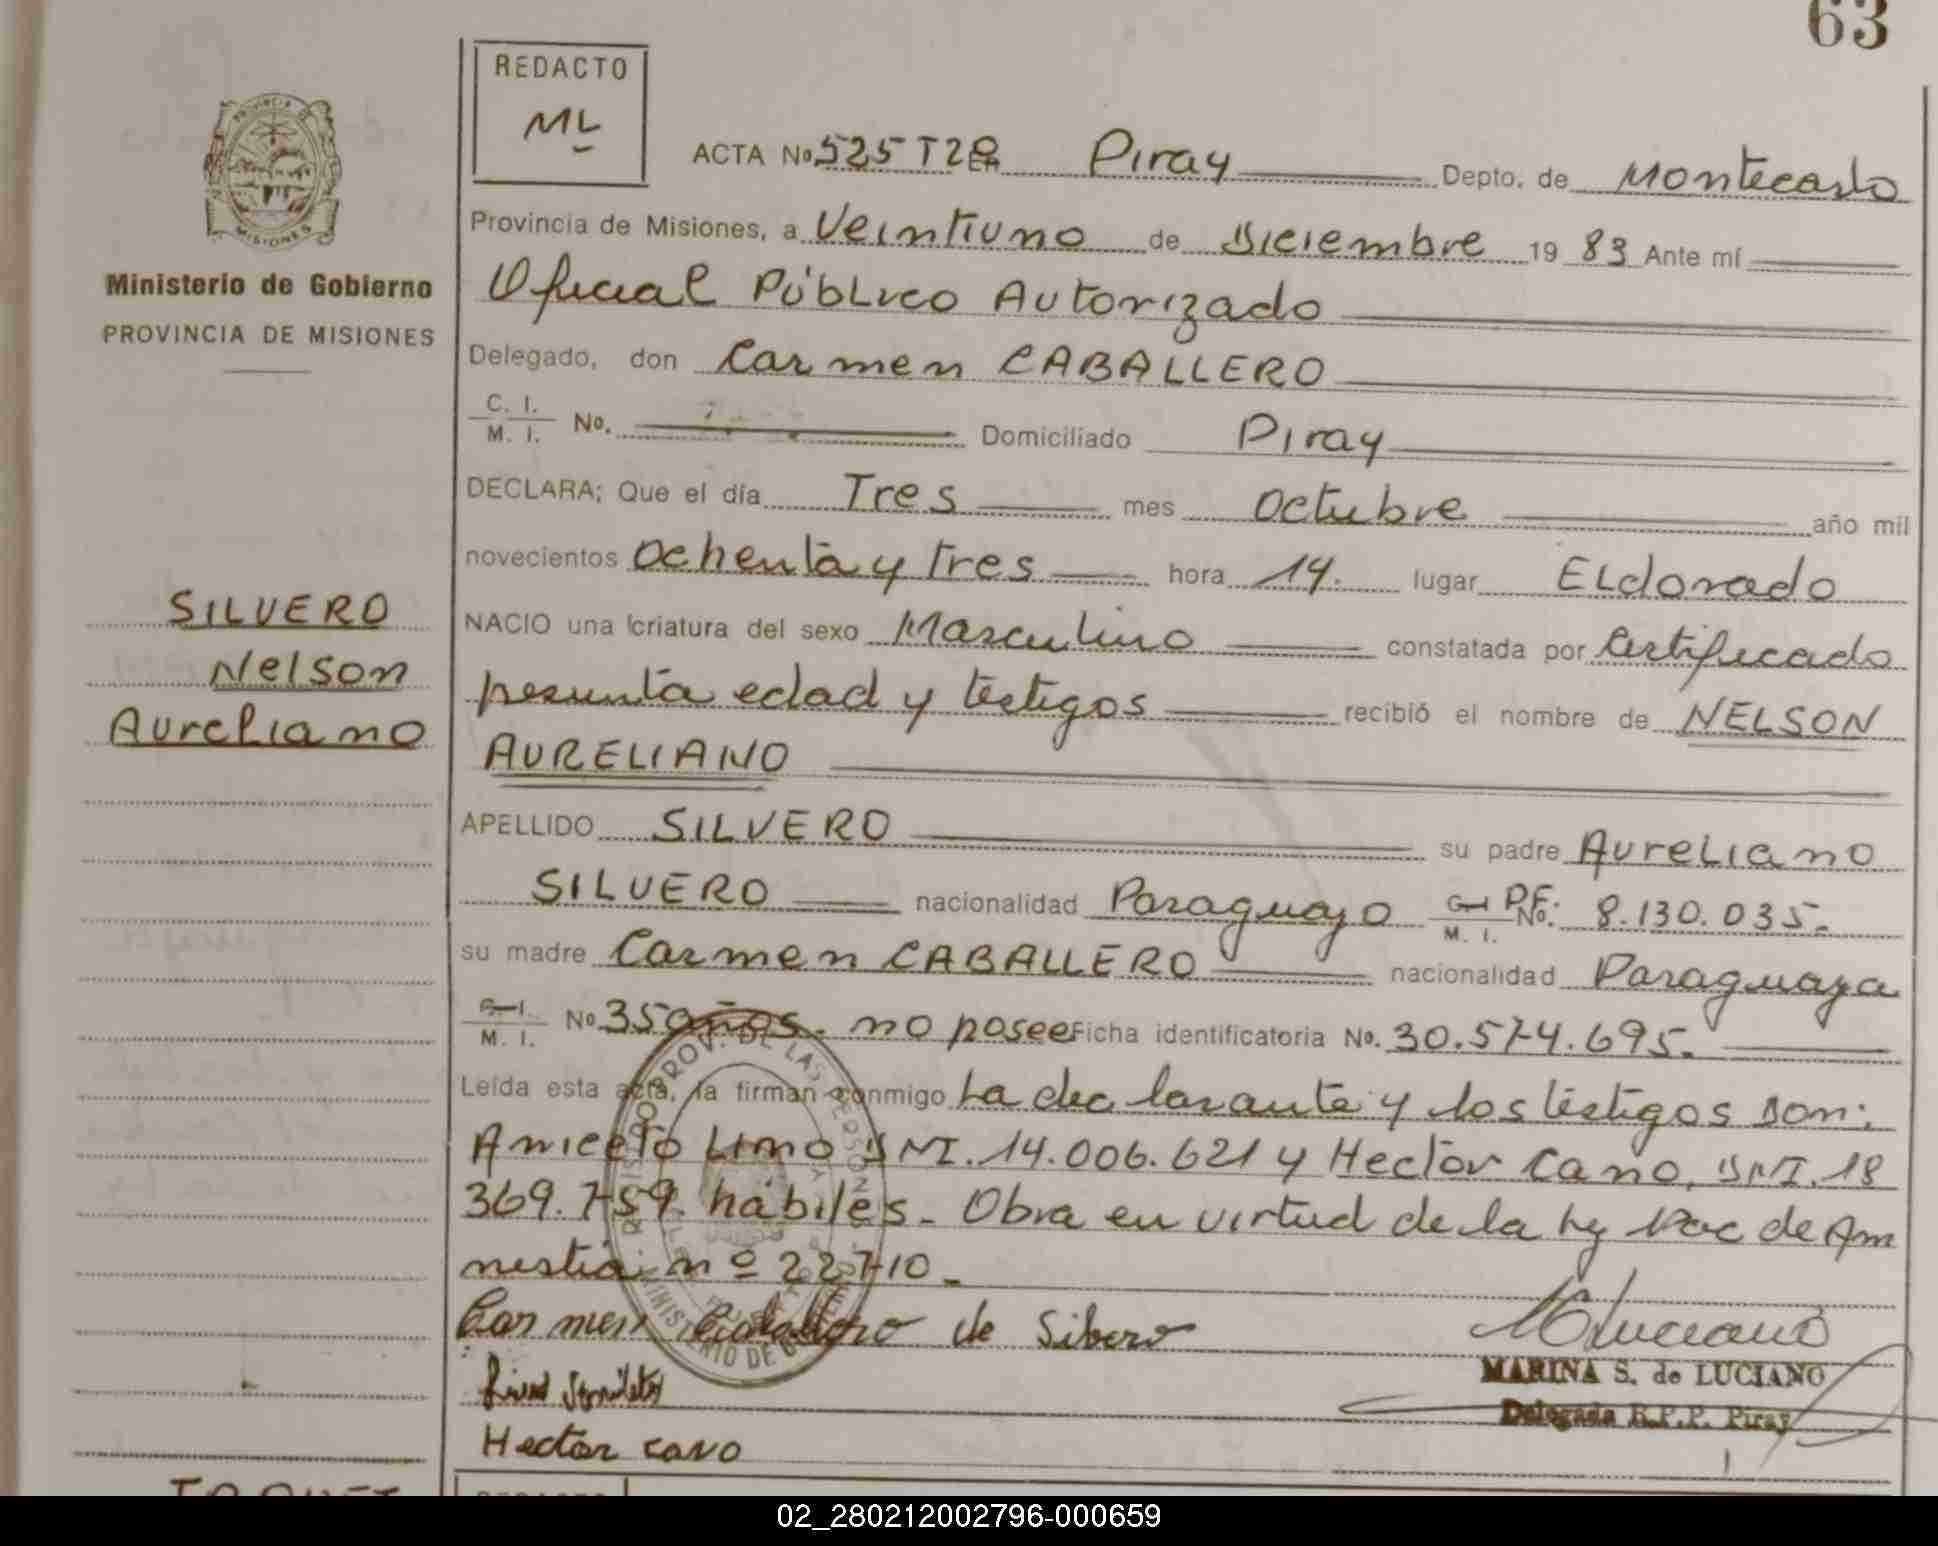 63
REDACTO
ML
PROVINCIA DE
MISIONES
Ministerio de Gobierno
PROVINCIA DE MISIONES
ACTA No. 525 T2º Piray Depto. de Montecarlo
Provincia de Misiones, a Veintiuno de Diciembre 19 83 Ante mí
Oficial Público Autorizado
Delegado, don Carmen CABALLERO
C. I.
M. I. No. Domiciliado Piray
DECLARA; Que el día Tres mes Octubre año mil
novecientos ochenta y tres hora 14. lugar ELdorado
NACIO una criatura del sexo Masculino constatada por Certificado
presunta edad y testigos recibió el nombre de NELSON
AURELIANO
SILVERO
Nelson
Aureliano
APELLIDO SILVERO su padre AureLiano
SILVERO nacionalidad Paraguayo C. I. D.F. M. I. No. 8.130.035.
su madre Carmen CABALLERO nacionalidad Paraguaya
C. I. M. I. No. 35 años. no posee Ficha identificatoria No. 30.574.695.
Leída esta acta, la firman conmigo La declarante y los testigos son:
Aniceto Limo DNI. 14.006.621 y Hector Cano, DNI. 18
369.759. hábiles. Obra en virtud de la ley Nac de Am
nestia nº 22710.
Carmen Caballero de Sibero
MARINA S. de LUCIANO
Delegada R.P.P. Piray
Hector cano
REDACTO
02_280212002796-000659